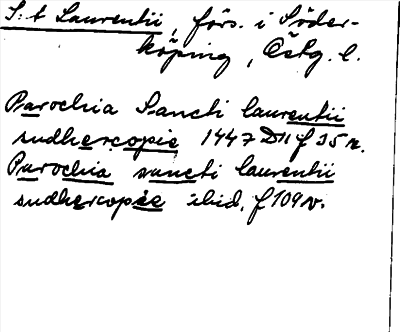 S:t Laurentii, förs. i Söder-
köping, Östg. l.
Parochia Sancti laurentii
sudhercopie 1447 D11 f 35 r.
Parochia sancti laurentii
sudhercopie ibid. f 109 v.